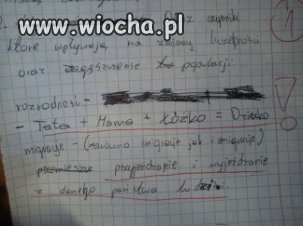 www.wiocha.pl
2. czynniki
które wpływają na zmiany liczebności
oraz zagęszczenie populacji
rozrodczość -
- Tata + Mama + Łóżko = Dziecko
migracje - (zarówno imigracje jak i emigracje)
przyjeżdzanie i wyjeżdzanie
z danego państwa ludzi.